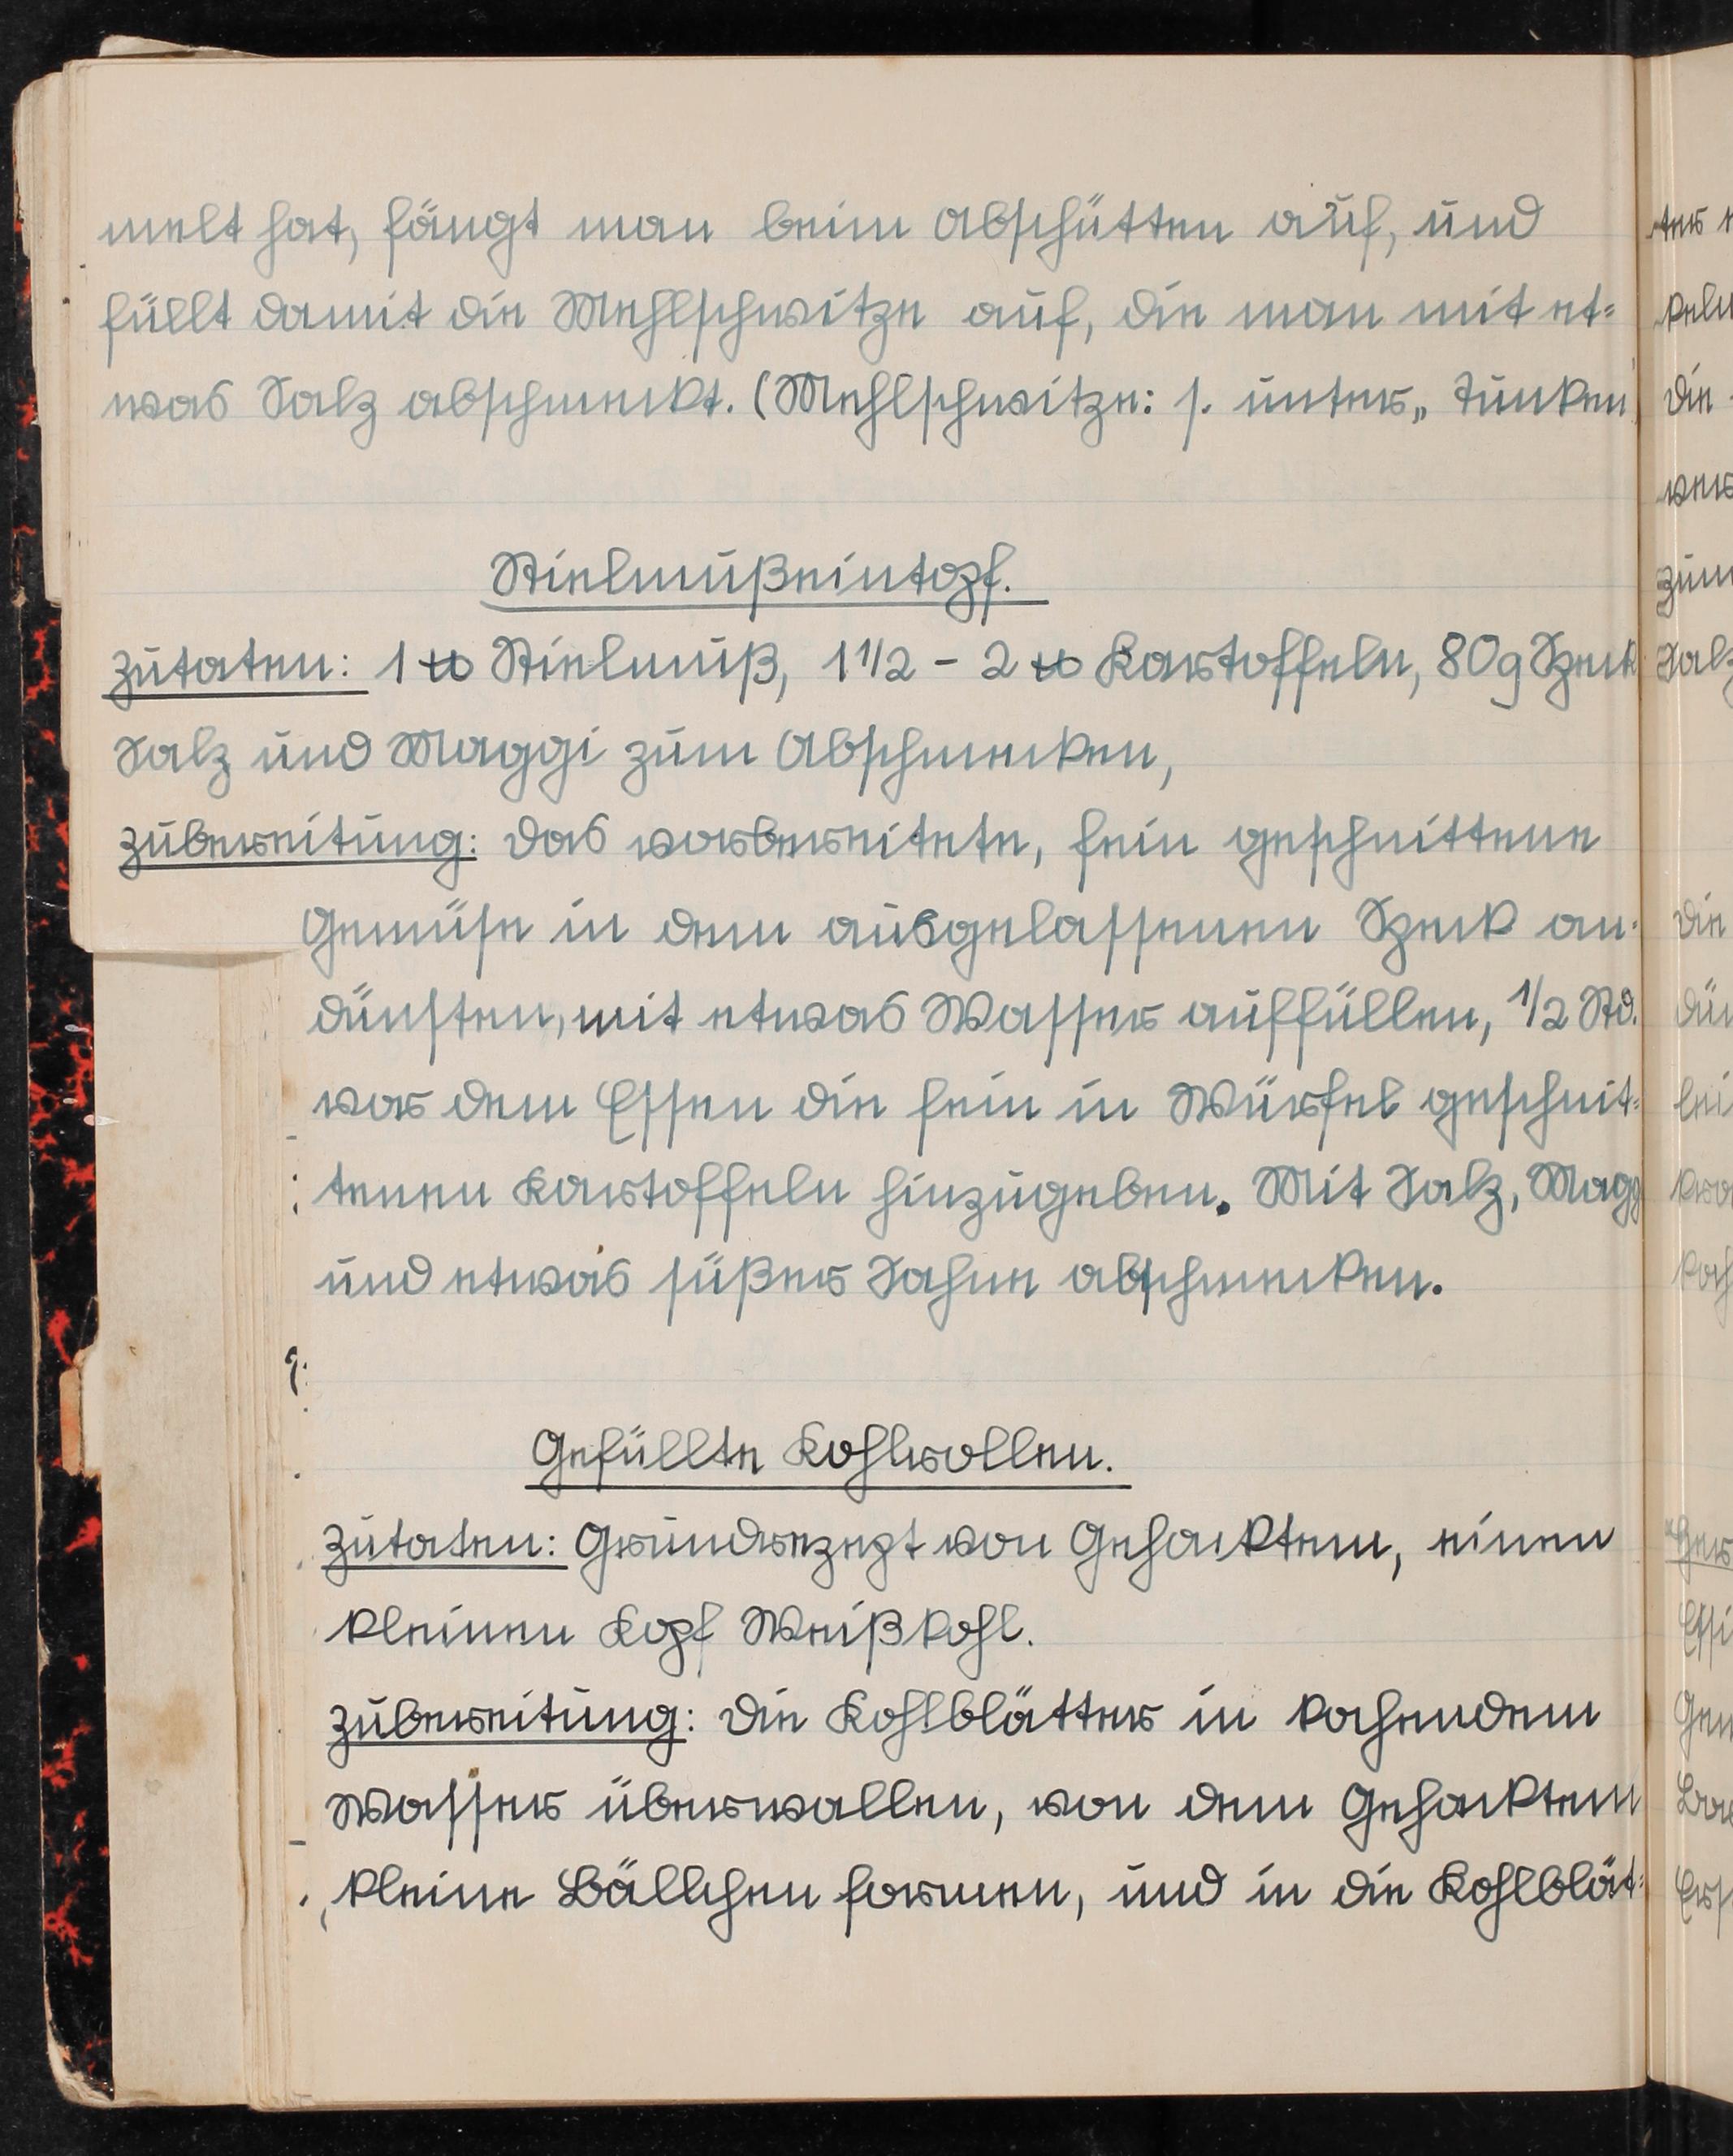 melt hat, fängt man beim Abschütten auf, und
füllt damit die Mehlschwitze auf, die man mit et=
was Salz abschmeckt. (Mehlschwitze: s. unter „Tunken
Stielmußeintopf.
Zutaten: 1 ℔ Stielmuß, 1 1/2 - 2 ℔ Kartoffeln, 80g Speck
Salz und Maggi zum Abschmecken,
Zubereitung: Das vorbereitete, fein geschnittene
Gemüse in dem ausgelassenen Speck an-
dünsten, mit etwas Wasser auffüllen, 1/2 Std.
vor dem Essen die fein in Würfel geschnit=
tenen Kartoffeln hinzugeben. Mit Salz, Magg
und etwas süßer Sahne abschmecken.
Gefüllte Kohlrollen.
Zutaten: Grundrezept von Gehacktem, einen
kleinen Kopf Weißkohl.
Zubereitung: Die Kohlblätter in kochendem
Wasser überwallen, von dem Gehacktem
kleine Bällchen formen, und in die Kohlblät=